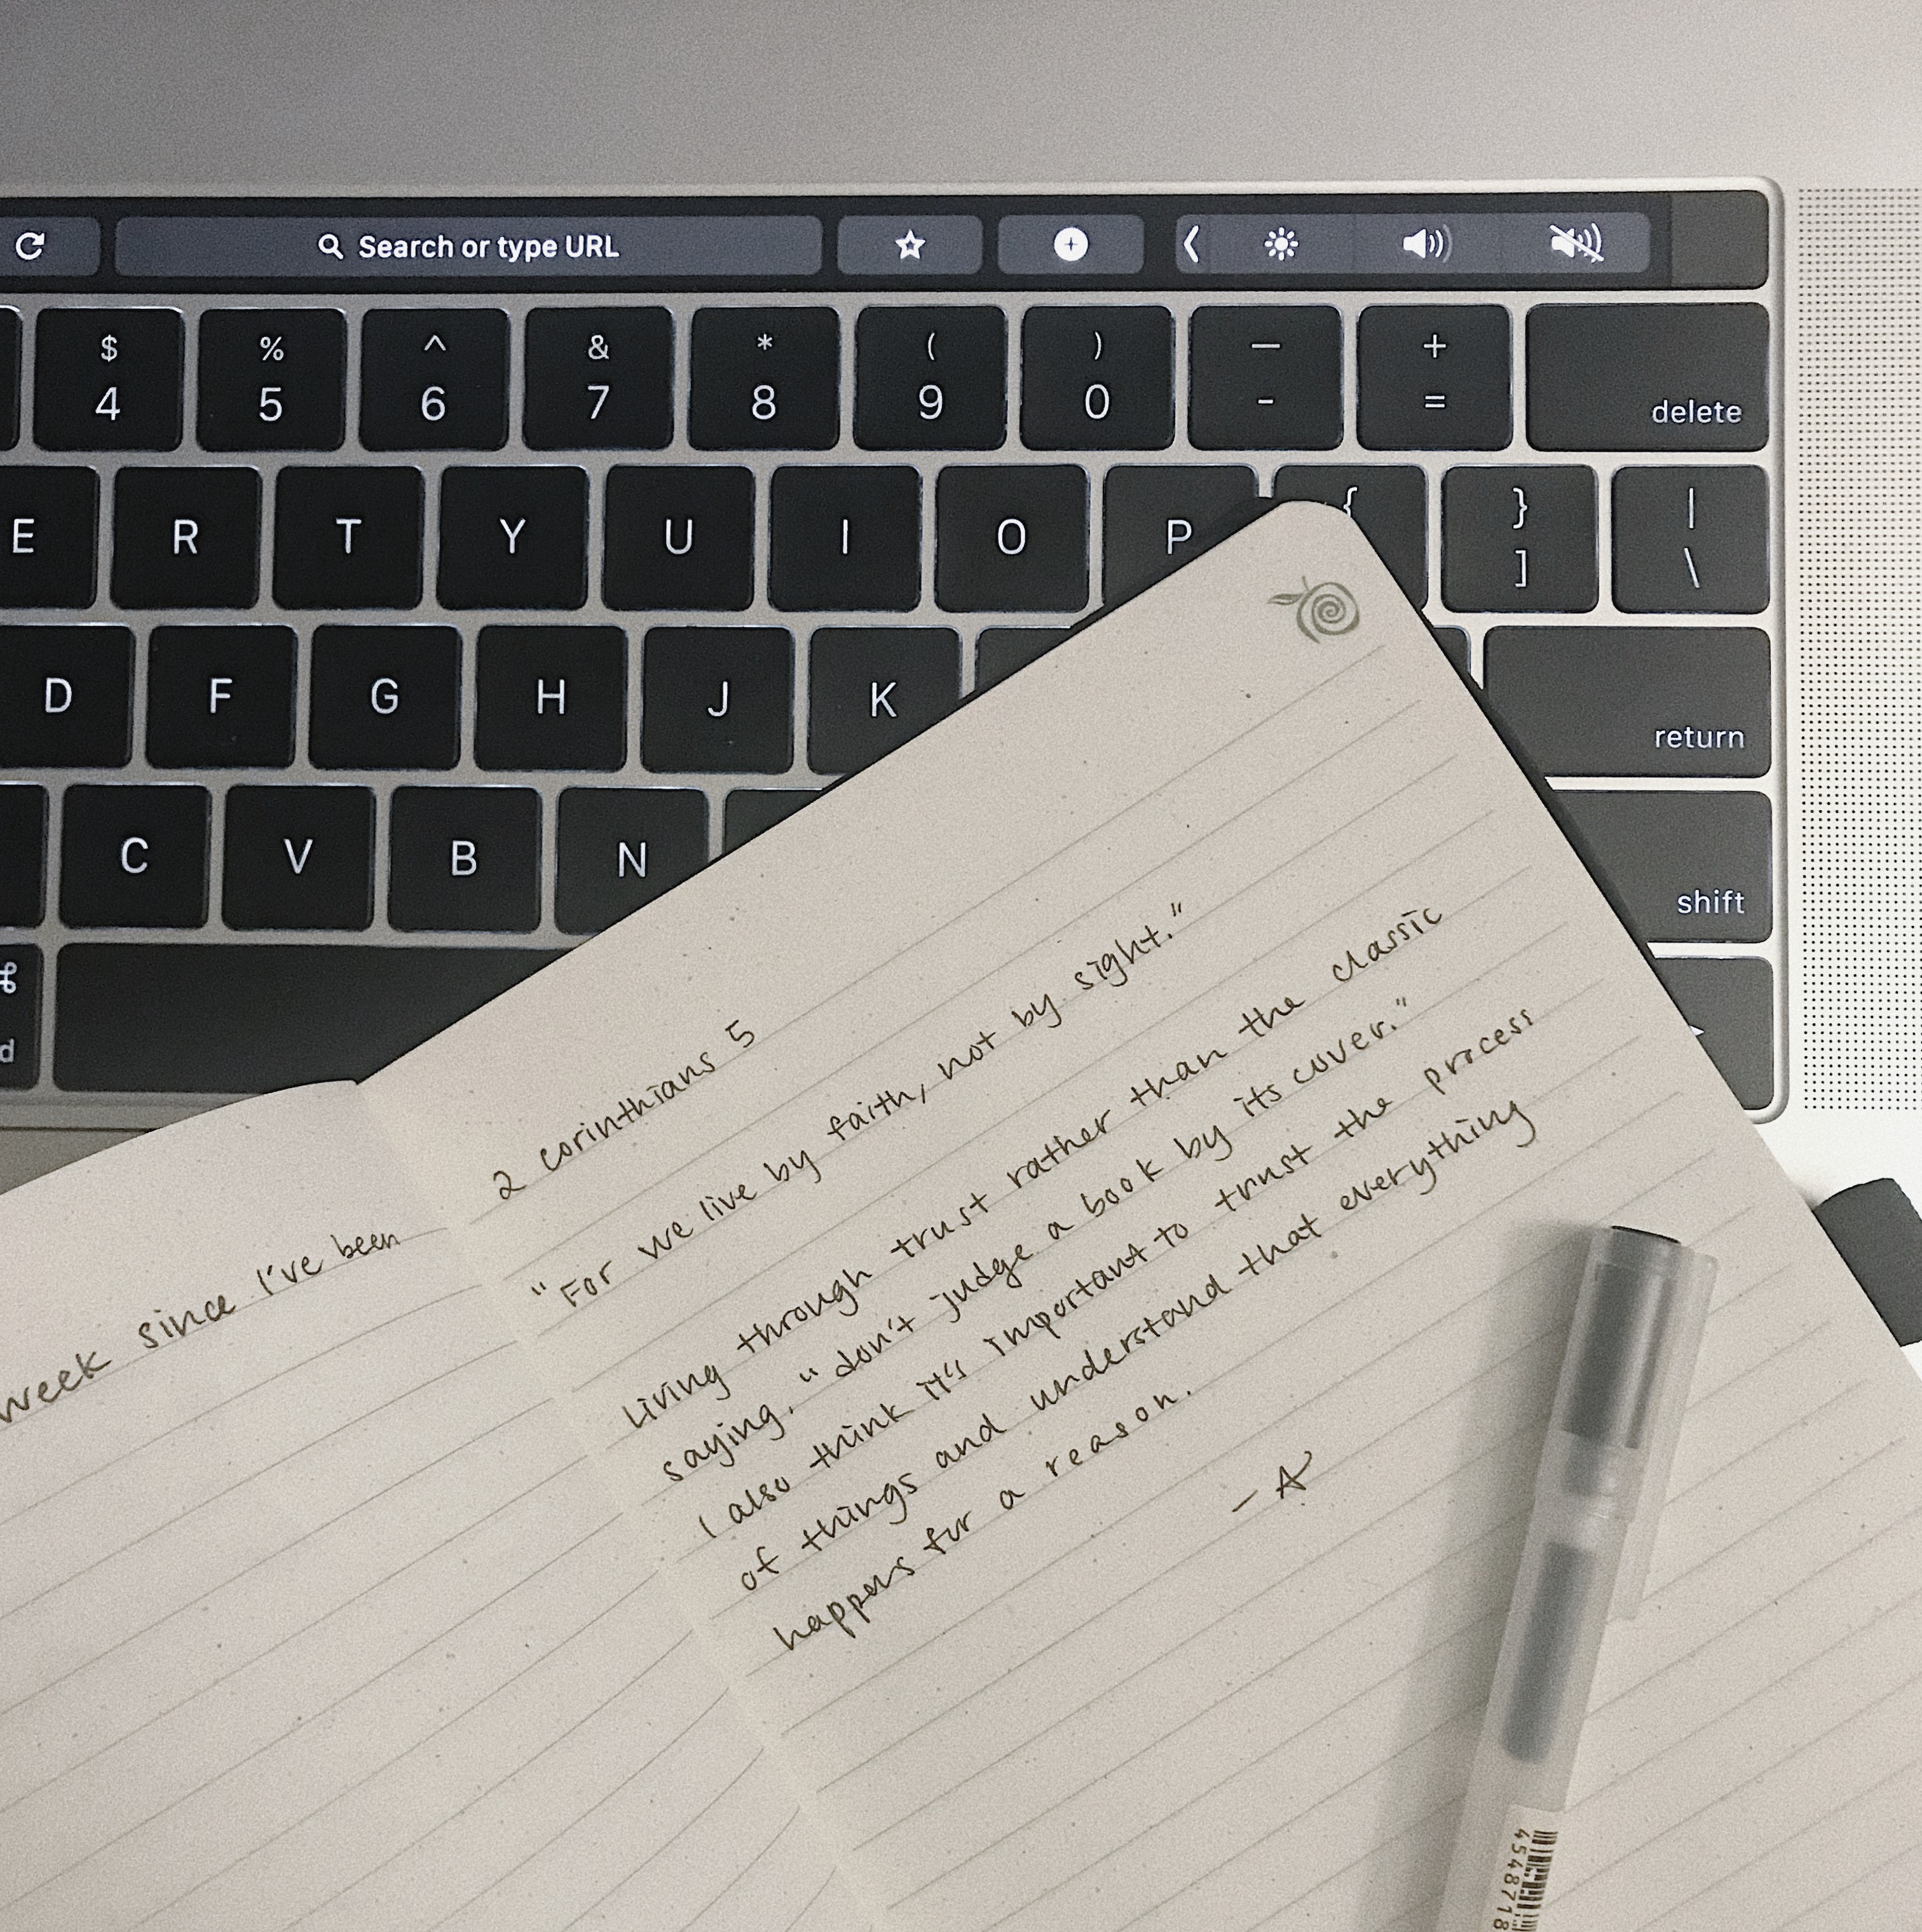 Search or type URL
$ % ^ & * ( ) — +
4 5 6 7 8 9 0 - = delete
E R T Y U I O P { } |
] \
D F G H J K return
C V B N shift
⌘
d
week since I've been
2 corinthians 5
"For we live by faith, not by sight."
Living through trust rather than the classic
saying, "don't judge a book by its cover."
I also think it's important to trust the process
of things and understand that everything
happens for a reason.
— A
4548718